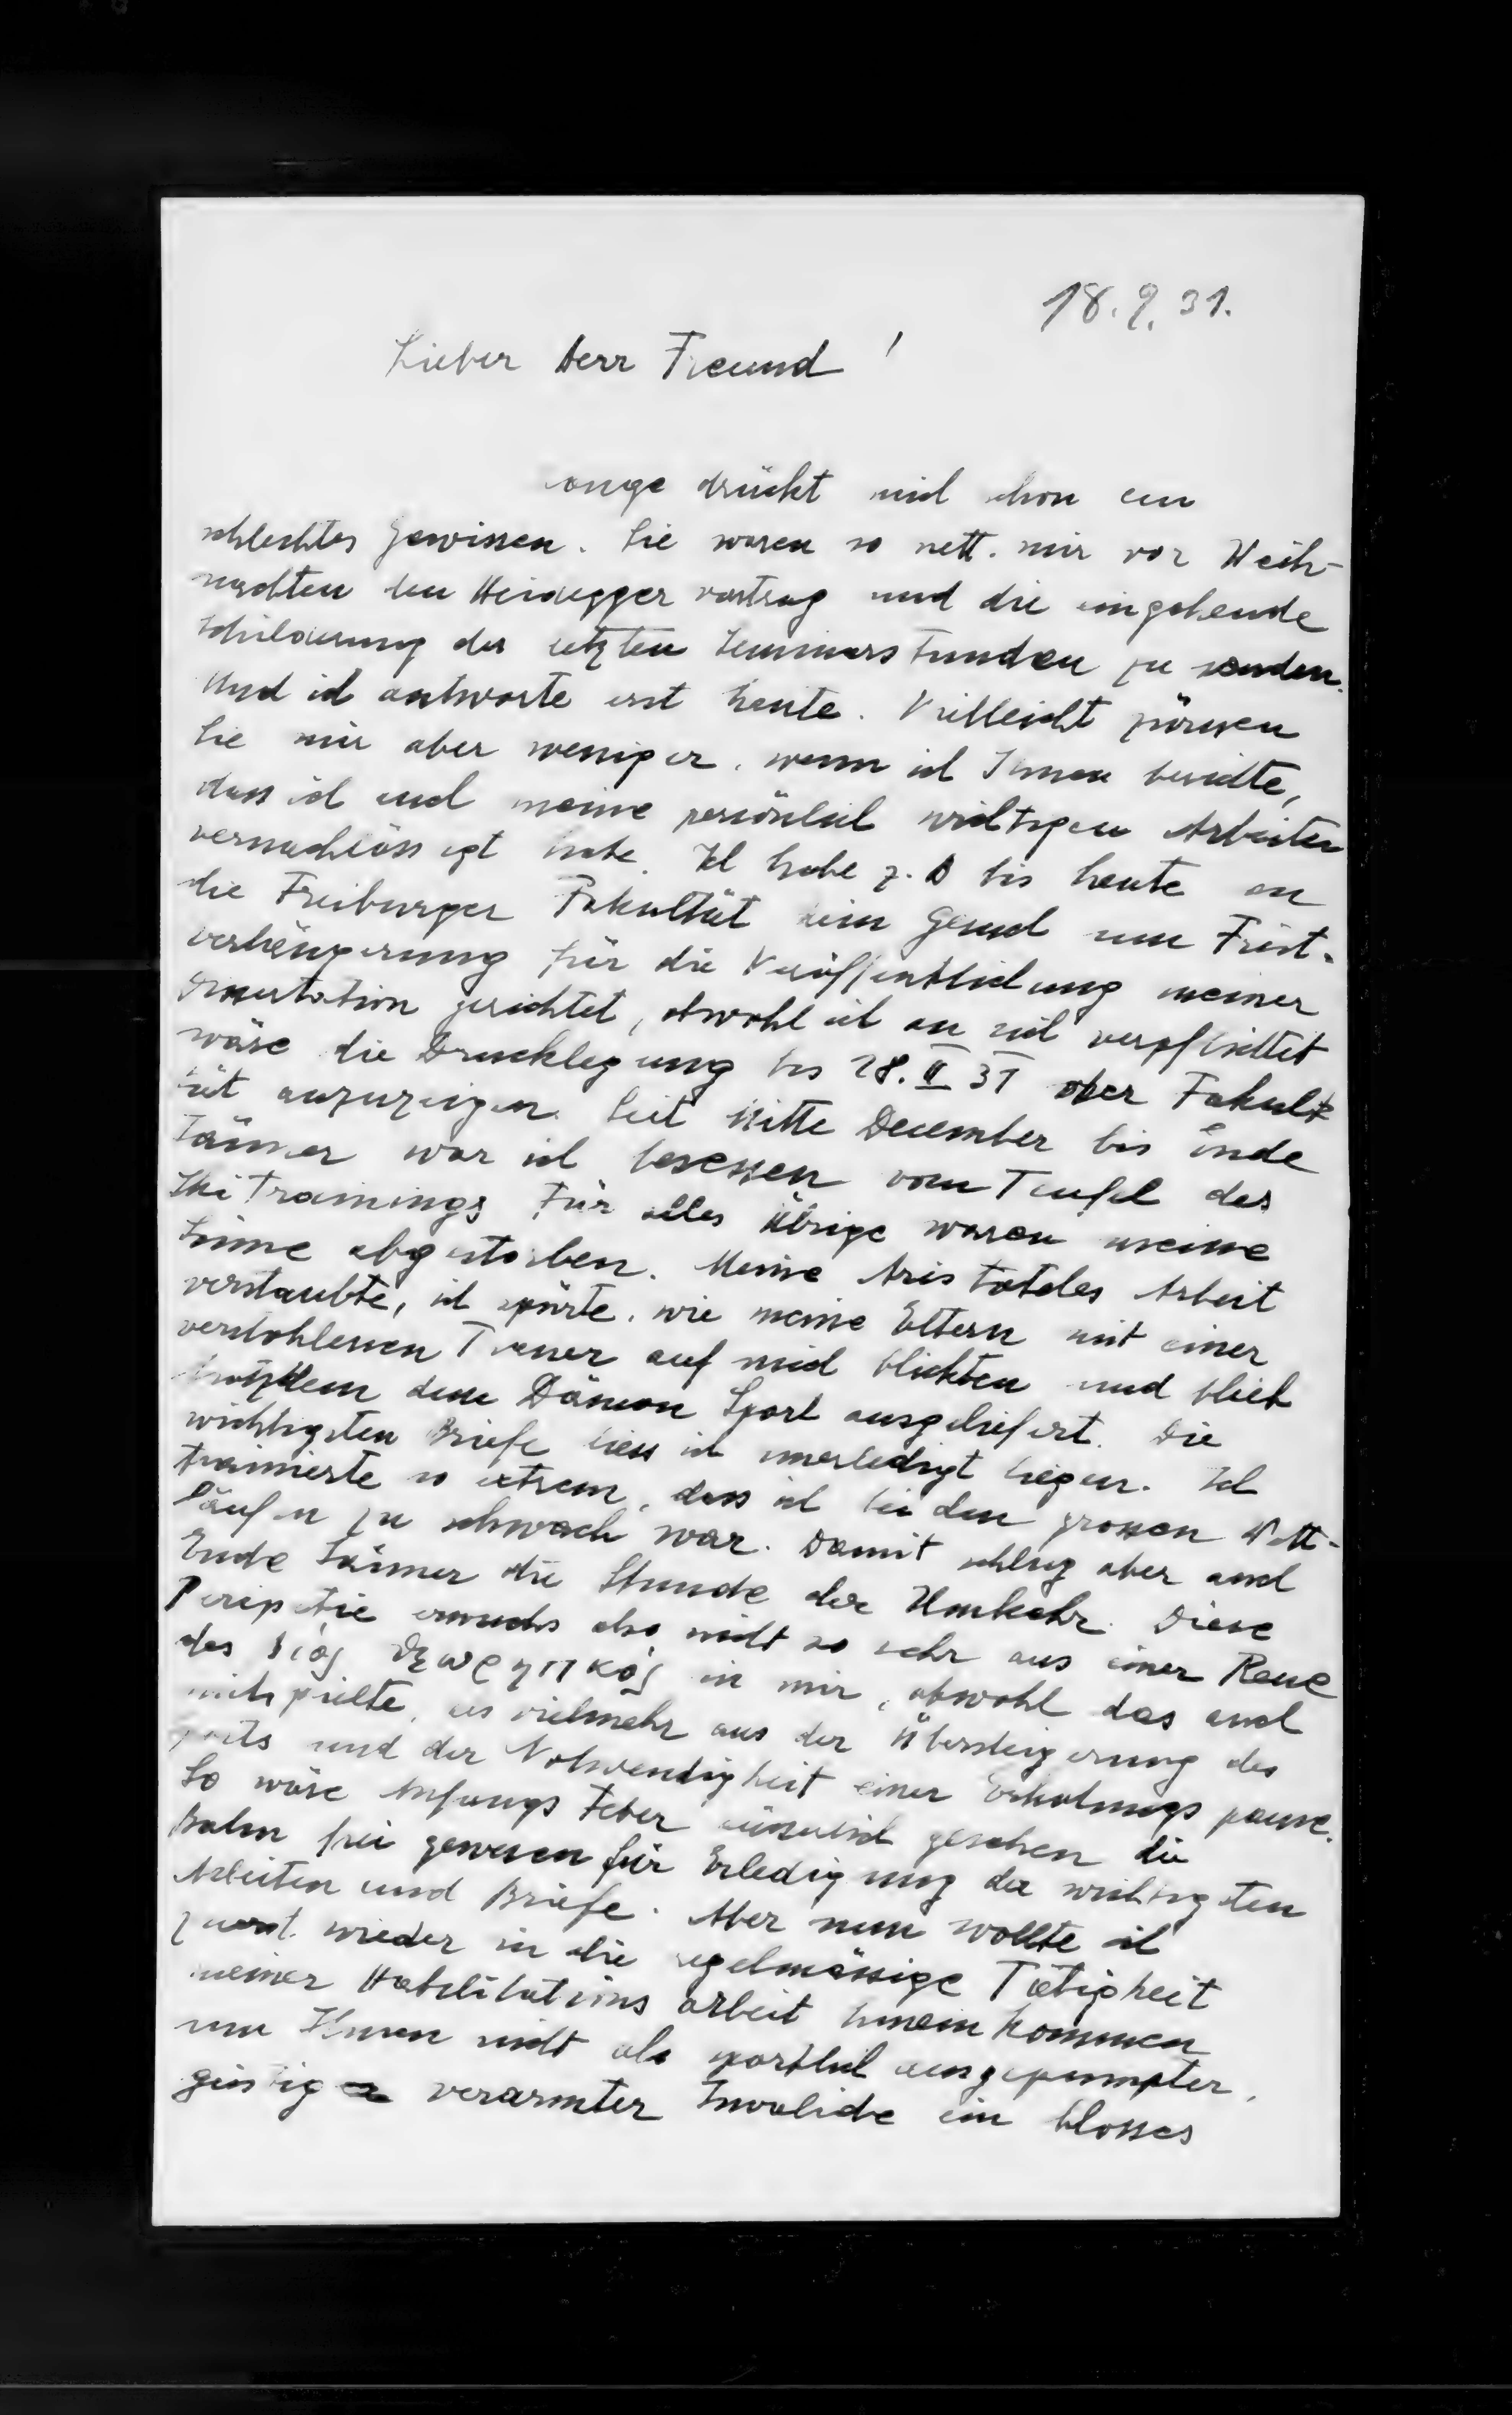 18.2.31.
Lieber Herr Freund!
Lange drückt mich schon ein
schlechtes Gewissen. Sie waren so nett, mir vor Weih-
nachten den Heideggervortrag und die eingehende
Schilderung der letzten Seminarstunden zu senden.
Und ich antworte erst heute. Vielleicht zürnen
Sie mir aber weniger, wenn ich Ihnen berichte,
dass ich auch meine persönlich wichtigen Arbeiten
vernachlässigt habe. Ich habe z.B bis heute an
die Freiburger Fakultät kein Gesuch um Frist-
verlängerung für die Veröffentlichung meiner
Dissertation gerichtet, obwohl ich an sich verpflichtet
wäre die Drucklegung bis 28.II 31 der Fakul-
tät anzuzeigen. Seit Mitte December bis Ende
Jänner war ich besessen vom Teufel des
Skitrainings Für alles Übrige waren meine
Sinne abgestorben. Meine Aristoteles Arbeit
verstaubte, ich spürte, wie meine Eltern mit einer
verstohlenen Trauer auf mich blickten und blieb
trotzdem dem Dämon Sport ausgeliefert. Die
wichtigsten Briefe liess ich unerledigt liegen. Ich
trainierte so extrem, dass ich bei den grossen Wett-
läufen zu schwach war. Damit schlug aber auch
Ende Jänner die Stunde der Umkehr. Diese
Peripetie erwuchs also nicht so sehr aus einer Reue
des βίος θεωρητικός in mir, obwohl das auch
mitspielte, als vielmehr aus der Übersteigerung des
Sports und der Notwendigkeit einer Erholungspause.
So wäre Anfangs Feber äusserlich gesehen die
Bahn frei gewesen für Erledigung der wichtigsten
Arbeiten und Briefe. Aber nun wollte ich
zuerst wieder in die regelmässige Tätigkeit
meiner Habilitationsarbeit hineinkommen
um Ihnen nicht als sportlich ausgepumpter,
geistig verarmter Invalide ein blosses